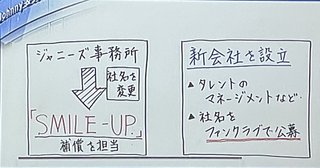 ジャニーズ事務所
社名を
変更
「SMILE-UP.」
補償を担当
新会社を設立
▲タレントの
マネージメントなど
▲社名を
ファンクラブで公募